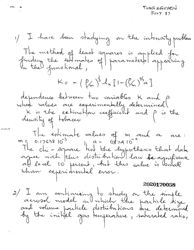 TUAN NGUYEN
JULY 87
1/ I have been studying on the intensity problem
The method of least squares is applied for
finding the estimates of parameters appearing
in the functional:
dependence between two variables K and ρ
whose values are experimentally determined.
K is the extinction coefficient and ρ is the
density of
The estimate values of m and a are:
The chi-square test the hypothesis that data
agree with the distribution law be significance
at level 10 percent, but this value is small
when experimental error.
2020170058
2/ I am continuing to study on the simple
aerosol model in which the particle size
and volume particle distributions are determined
by the initial gas temperature, saturated ratio,